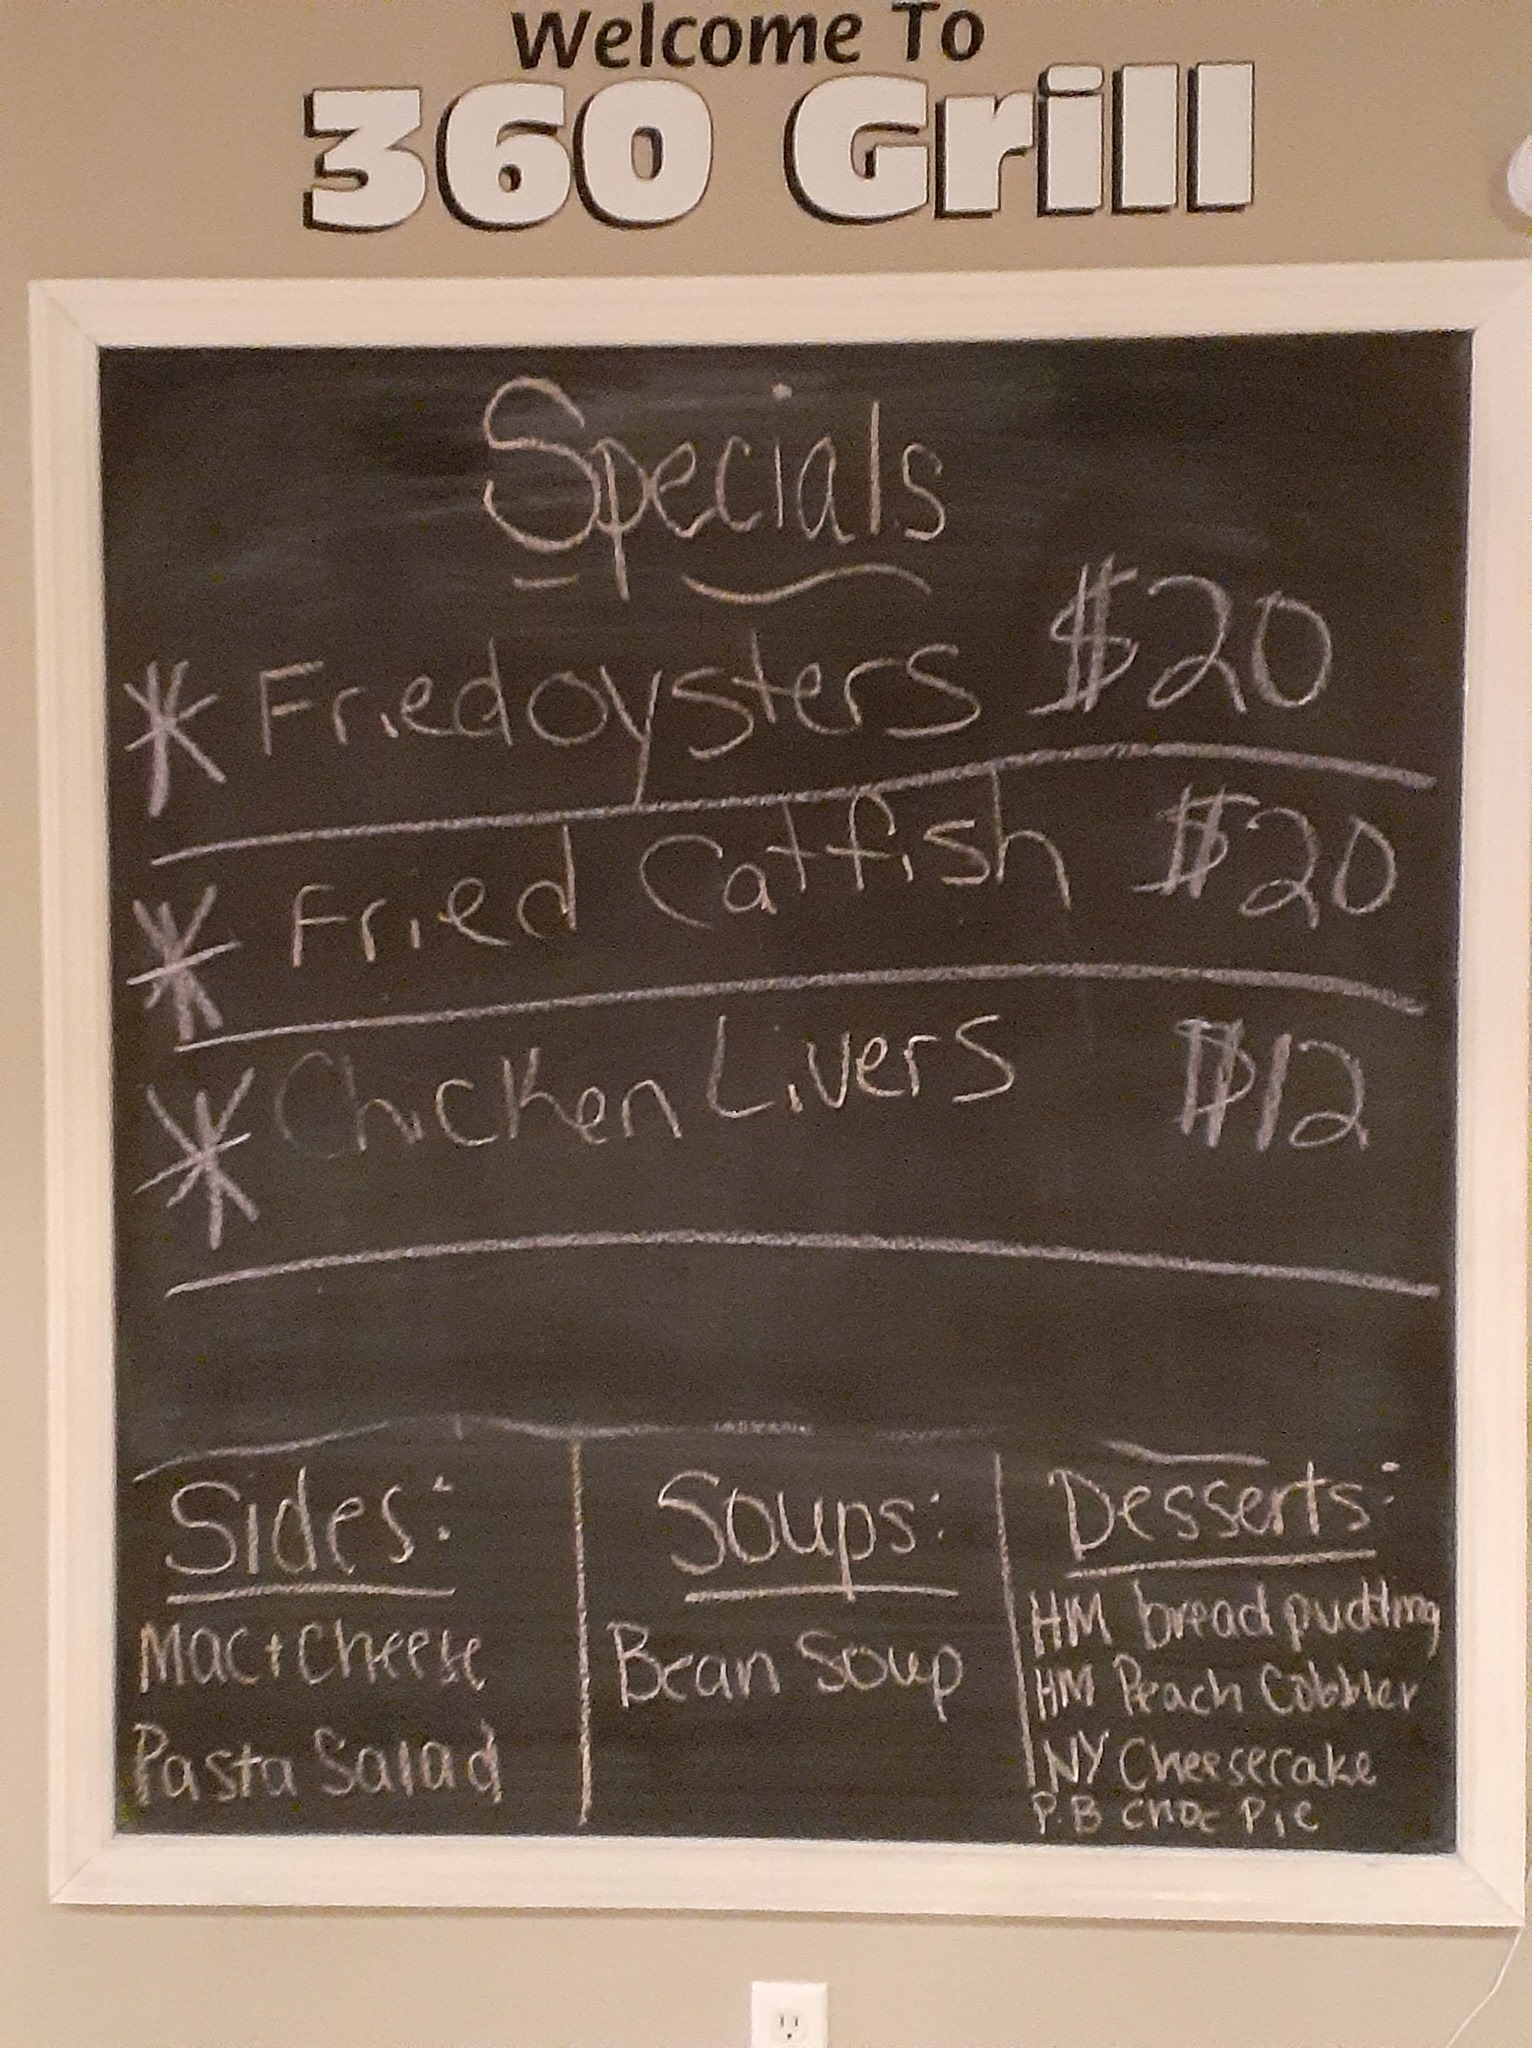 Welcome To
360 Grill
Specials
* Fried oysters $20
* Fried Catfish $20
* Chicken Livers $12
Sides:
Mac + Cheese
Pasta Salad
Soups:
Bean Soup
Desserts:
HM bread pudding
HM Peach Cobbler
NY Cheesecake
P.B Choc Pie